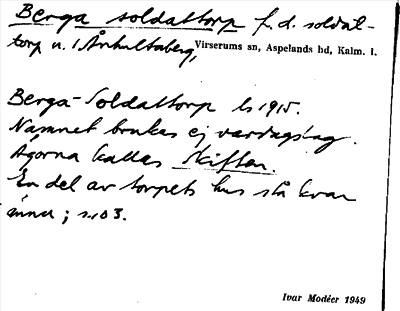 Berga soldattorp f.d. soldat-
torp u. / Århultaberg,
Virserums sn, Aspelands hd, Kalm. l.
Berga-Soldattorp ls 1915.
Namnet brukas ej vardagslag.
Ägorna kallas Skiften.
En del av torpets hus stå kvar
ännu; s. 103.
Ivar Modéer 1949